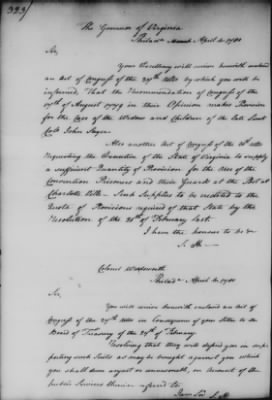 323
The Governor of Virginia
Philad<sup>a</sup> April 4. 1780
Sir,
Your Excellency will receive herewith enclosed
an Act of Congress of the 29th Ulto by which you will be
informed, That the Recommendation of Congress of the
17th of August 1779 in their Opinion makes Provision
for the Case of the Widow and Children of the late Lieut
Colo John
Also another Act of Congress of the 31st Ulto
Requesting the Executive of the State of Virginia to supply
a sufficient Quantity of Provision for the Use of the
Convention Prisoners and their Guards at the Post at
Charlotte Ville — Such Supplies to be credited to the
Quota of Provisions required of that State by the
Resolution of the 25th of February last.
I have the honour to be &c
S. H—
Colonel Wadsworth
Philad<sup>a</sup> April 4. 1780
Sir,
You will receive herewith enclosed an Act of
Congress of the 29th Ulto in Consequence of your Letter to the
Board of Treasury of the 29th of February
Resolving that they will defend you in sup-
porting such Suits as may be brought against you which
you shall deem unjust or unreasonable, on Account of the
public Services therein referred to
I am Sir S. H—